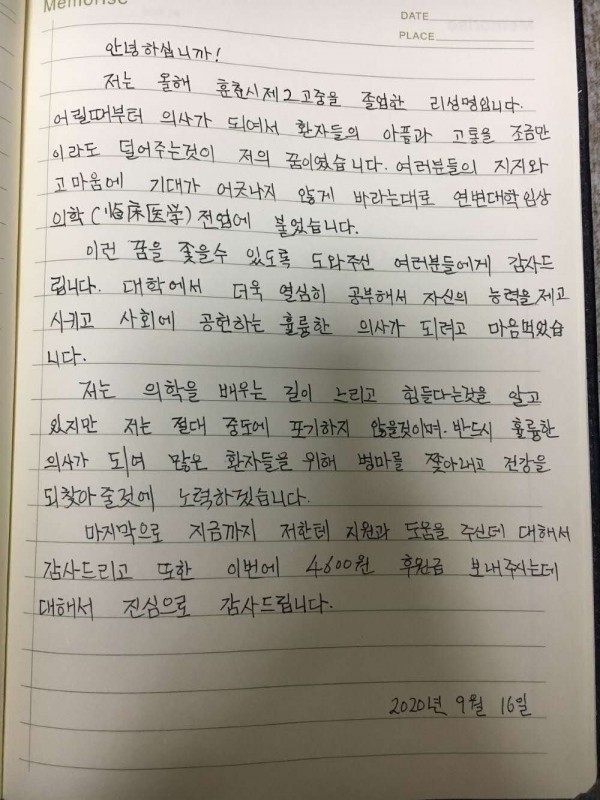 Memorise
DATE
PLACE
안녕하십니까!
저는 올해 훈춘시제2고중을 졸업한 리성명입니다.
어릴때부터 의사가 되여서 환자들의 아픔과 고통을 조금만
이라도 덜어주는것이 저의 꿈이였습니다. 여러분들의 지지와
고마움에 기대가 어긋나지 않게 바라는대로 연변대학임상
의학(临床医学)전업에 붙었습니다.
이런 꿈을 좇을수 있도록 도와주선 여러분들에게 감사드
립니다. 대학에서 더욱 열심히 공부해서 자신의 능력을제고
시키고 사회에 공헌하는 훌륭한 의사가 되려고 마음먹었습
니다.
저는 의학을 배우는 길이 느리고 힘들다는것을 알고
있지만 저는 절대 중도에 포기하지 않을것이며. 반드시 훌륭한
의사가 되여 많은 환자들을 위해 병마를 쫓아내고 건강을
되찾아줄것에 노력하겠습니다.
마지막으로 지금까지 저한테 지원과 도움을 주신데 대해서
감사드리고 또한 이번에 4600원 후원금 보내주시는데
대해서 진심으로 감사드립니다.
2020년 9월 16일